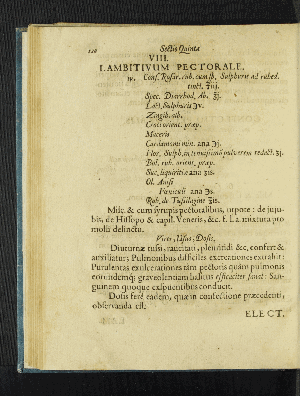 Sectio Quinta
VIII.
LAMBITIVUM PECTORALE.
℞. Cons. Rosar. rub. cum Sulphuris ad rubed.
tinct. ℥iij.
Spec. Diarrhod. Ab. ℥j.
Lact. Sulphuris ℈v.
Zingib. alb.
Croci orient. præp.
Maceris
Cardamomi min. ana ℈j.
Flor. Sulph. in tenuissimū pulverem redact. ʒj.
Bol. rub. orient. præp.
Suc. liquiritiæ ana ʒis.
Ol. Anisi
Fœniculi ana ℈s.
Rob. de Tussilagine ℥is.
Misc. & cum syrupis pectoralibus, utpote: de juju-
bis, de Hissopo & capil. Veneris, &c. f. La mixtura pro
molli delinctu.
Vires, Usus, Dosis,
Diuturnæ tussi, raucitati, pleuritidi &c, confert &
auxiliatur: Pulmonibus difficiles excretiones extrahit:
Purulentas exulcerationes tàm pectoris quàm pulmonis
eorúndemq; graveolentiam halitus efficaciter sanat: San-
guinem quoque exspuentibus conducit.
Dosis ferè eadem, quæ in confectione præcedenti,
observanda est.
ELECT.